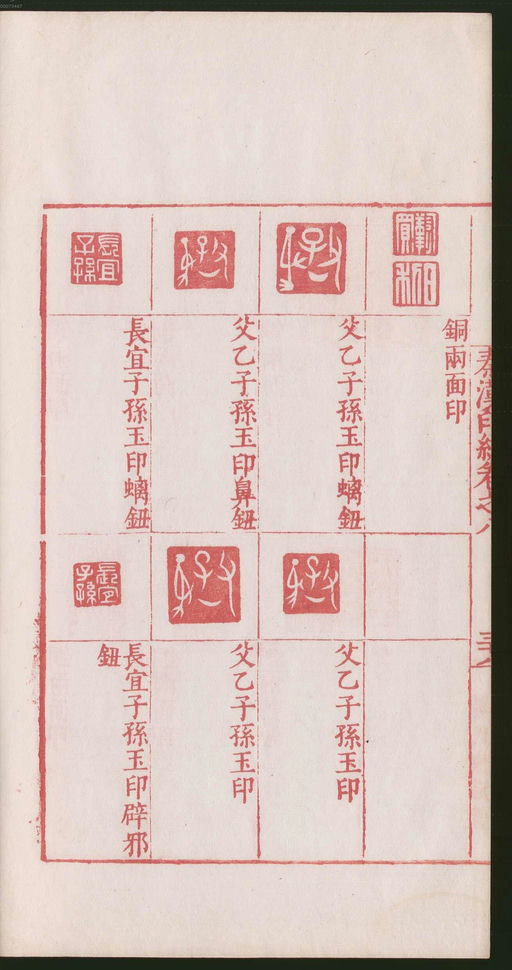 銅兩面印
父乙子孫玉印螭鈕
父乙子孫玉印鼻鈕
長宜子孫
長宜子孫玉印螭鈕
父乙子孫玉印
父乙子孫玉印
長宜子孫
長宜子孫玉印辟邪
鈕
00079467